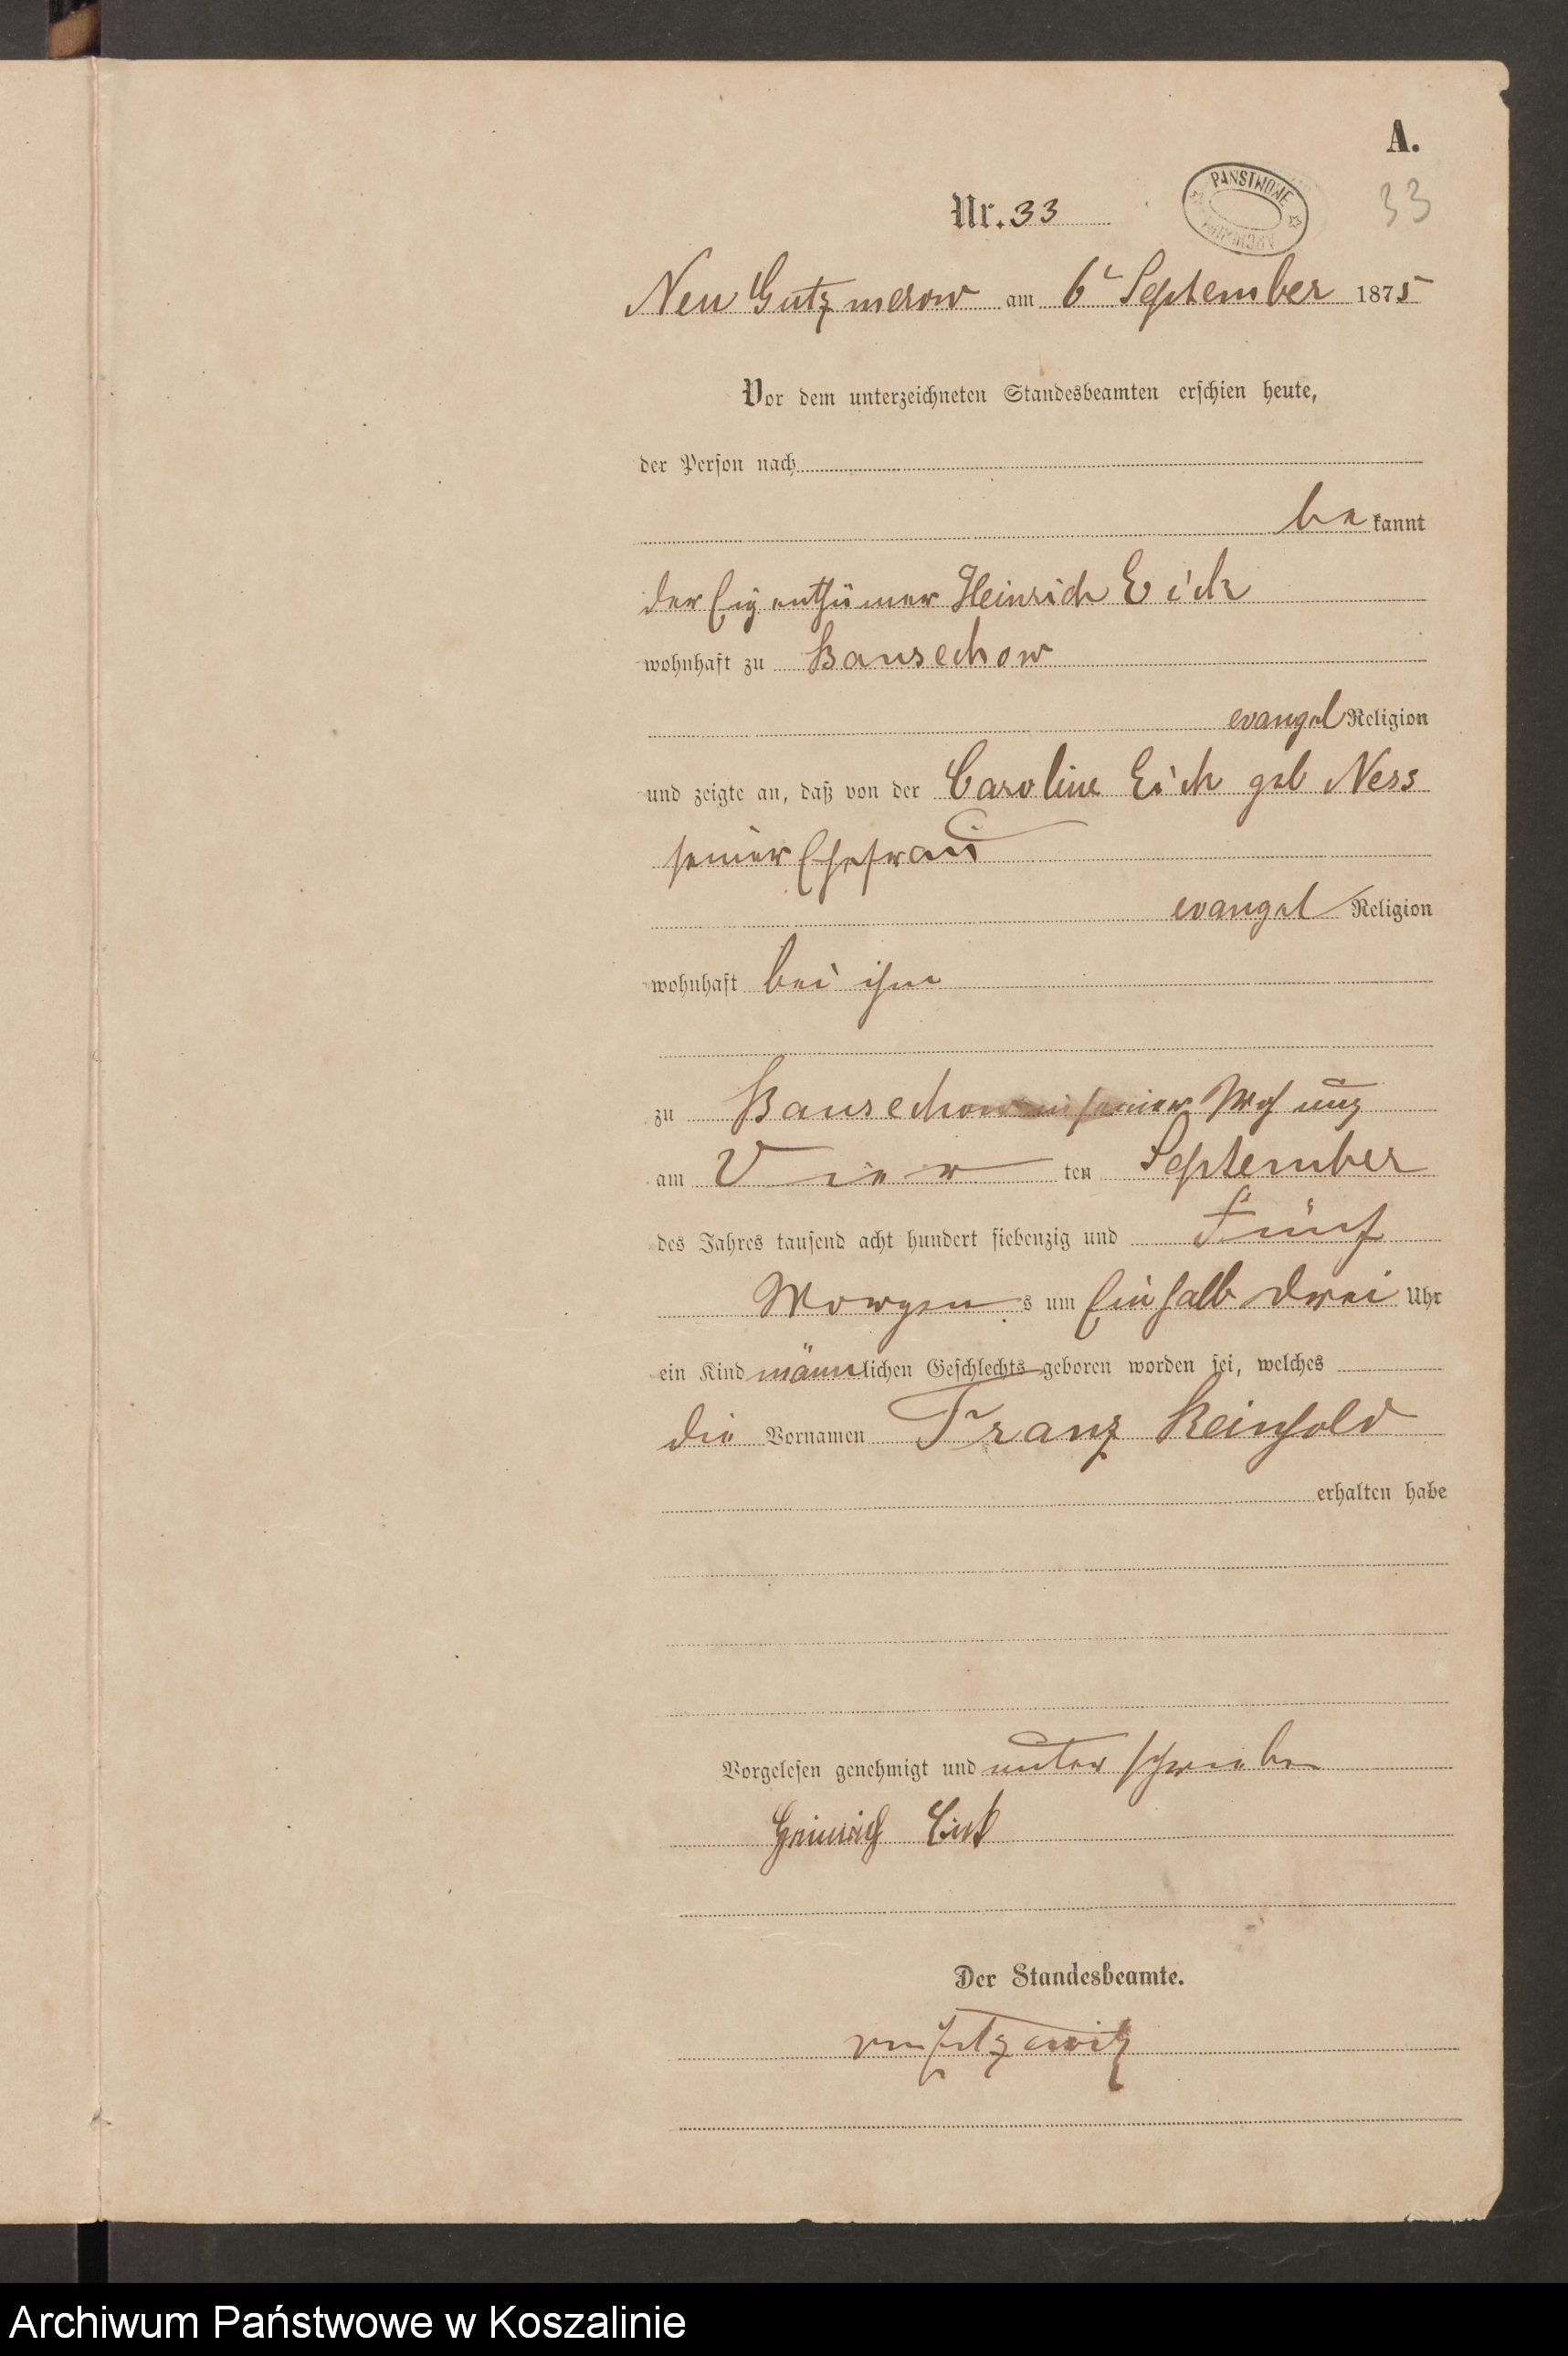 A.
Nr. 33
PAŃSTWOWE
ARCHIWUM
33
Neu Gutzmerow am 6t September 1875
Vor dem unterzeichneten Standesbeamten erschien heute,
der Person nach
be kannt
der Eigenthümer Heinrich Eick
wohnhaft zu Banseckow
evangel Religion
und zeigte an, daß von der Caroline Eick geb Ness
seiner Ehefrau
evangel Religion
wohnhaft bei ihm
zu Banseckow in seiner Wohnung
am Vier ten September
des Jahres tausend acht hundert siebenzig und Fünf
Morgen s um Ein halb drei Uhr
ein Kind männlichen Geschlechts geboren worden sei, welches
die Vornamen Franz Reinhold
erhalten habe
Vorgelesen genehmigt und unterschrieben
Heinrich Eick
Der Standesbeamte.
Archiwum Państwowe w Koszalinie